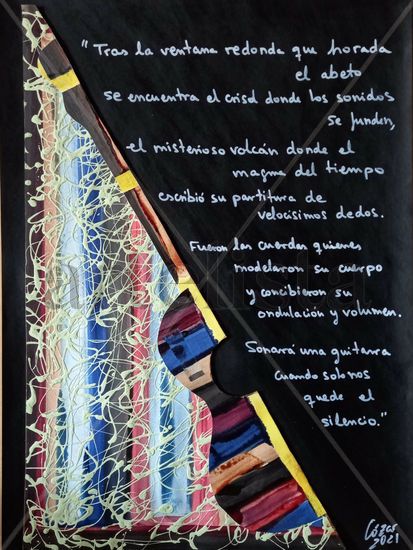 "Tras la ventana redonda que horada
el abeto
se encuentra el crisol donde los sonidos
se funden,
el misterioso volcán donde el
magma del tiempo
escribió su partitura de
velocísimos dedos.
Fueron las cuerdas quienes
modelaron su cuerpo
y concibieron su
ondulación y volumen.
Sonará una guitarra
cuando solo nos
quede el
silencio."
Cózar
2021